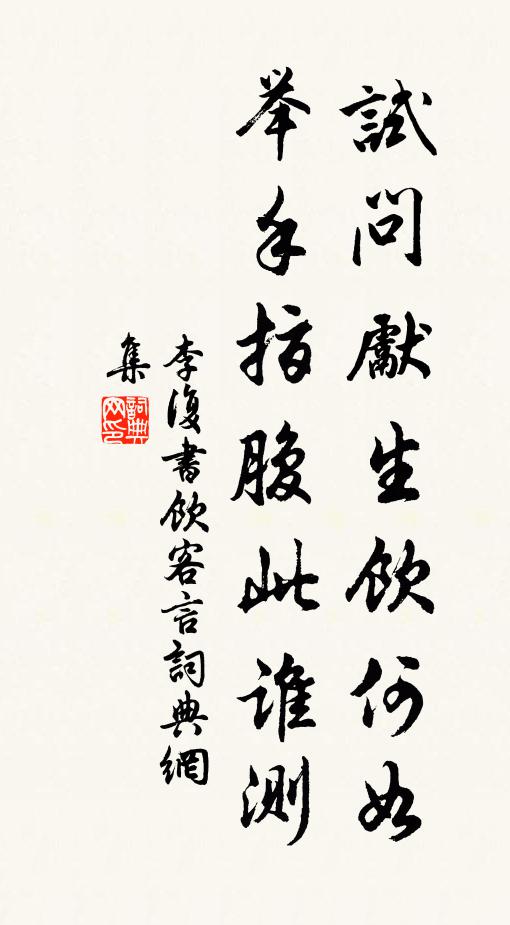 試問獻生飲何如
举手指腹此誰測
李復書飲客言詞典網
集
詞典
网印